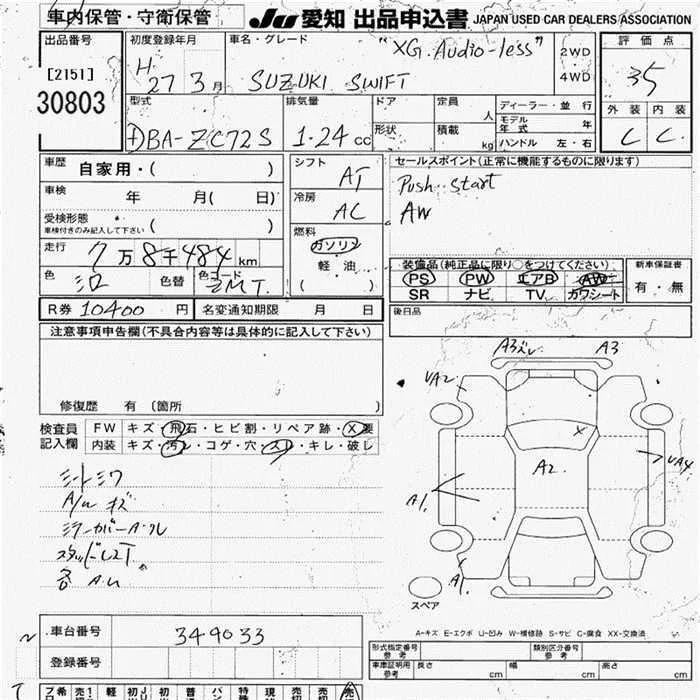 車内保管・守衛保管
JU 愛知 出品申込書 JAPAN USED CAR DEALERS ASSOCIATION
出品番号
[2151]
30803
初度登録年月
H 27 3 月
車名・グレード
"XG. Audio-less"
SUZUKI SWIFT
2WD
4WD
評価点
35
外装 内装
C C
型式
DBA-ZC72S
排気量
1.24 cc
ドア
形状
定員 人
積載 kg
ディーラー・並行
モデル年式 年
ハンドル 左・右
車歴 自家用・( )
車検 年 月( 日)
受検形態
車検付きのみ記入して下さい ( )
走行 7万8千484 km
色 色替 色コード ZMT.
シフト AT
冷房 AC
燃料
ガソリン
軽・油
( )
セールスポイント(正常に機能するものに限ります)
Push start
AW
装備品(純正品に限り○をつけてください)
PS PW エアB AW
SR ナビ TV カワシート
新車保証書
有・無
R券 10400 円 名変通知期限 月 日
後日品
注意事項申告欄(不具合内容等は具体的に記入して下さい)
修復歴 有 〔箇所 〕
検査員 FW キズ・飛石・ヒビ割・リペア跡・X要
記入欄 内装 キズ・汚レ・コゲ・穴・スレ・キレ・破レ
シートシワ
A/W キズ
ミラーカバーA・クル
A3 A3
UA2
A2
X
UA4
A1
A1
スペア
A-キズ E-エクボ U-凹み W-補修跡 S-サビ C-腐食 XX-交換済
車台番号 349033
登録番号
形式指定番号 参考
類別区分番号 参考
車庫証明用 参考 長さ cm 幅 cm 高さ cm